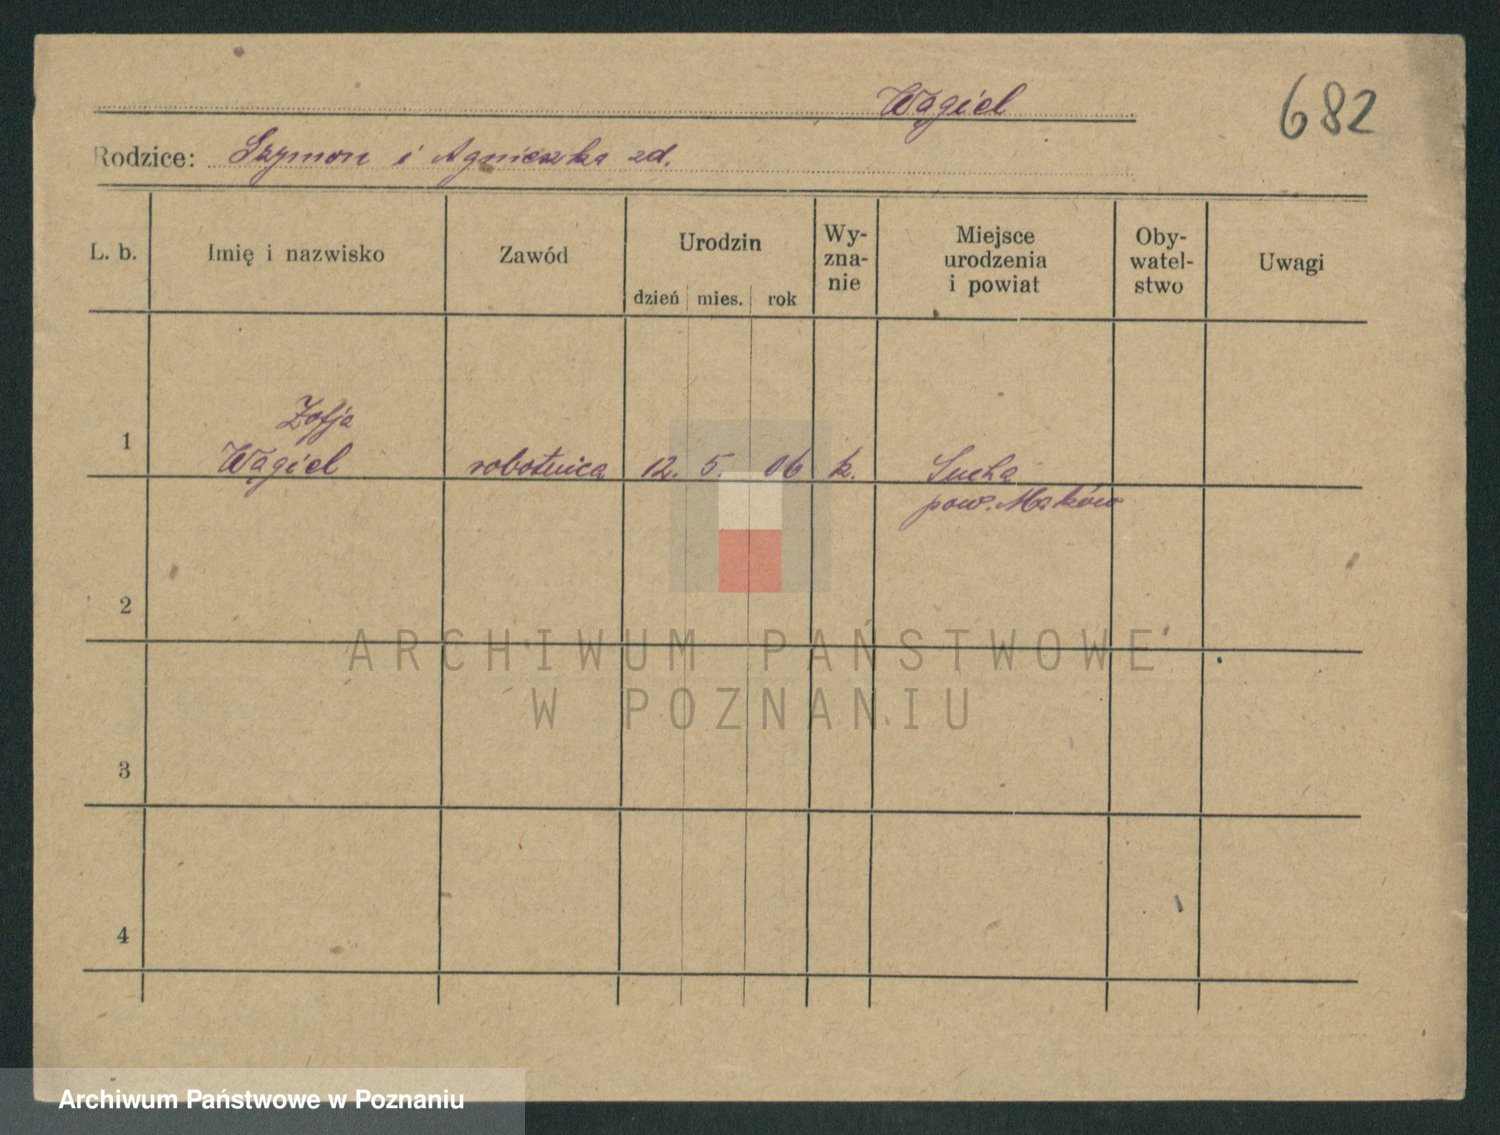 Wągiel
682
Rodzice: Szymon i Agnieszka zd.
L. b. Imię i nazwisko Zawód Urodzin dzień mies. rok Wy-zna-nie Miejsce urodzenia i powiat Oby-watel-stwo Uwagi
Zofja
1 Wągiel robotnica 12. 5. 06 k. Sucha
pow. Maków
2
ARCHIWUM PAŃSTWOWE
W POZNANIU
3
4
Archiwum Państwowe w Poznaniu